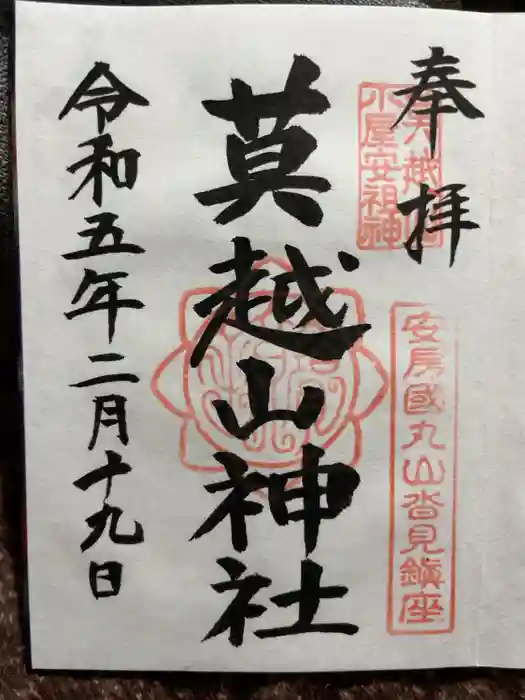 奉拝
小屋安祖神
安房國丸山沓見鎮座
莫越山神社
令和五年二月十九日